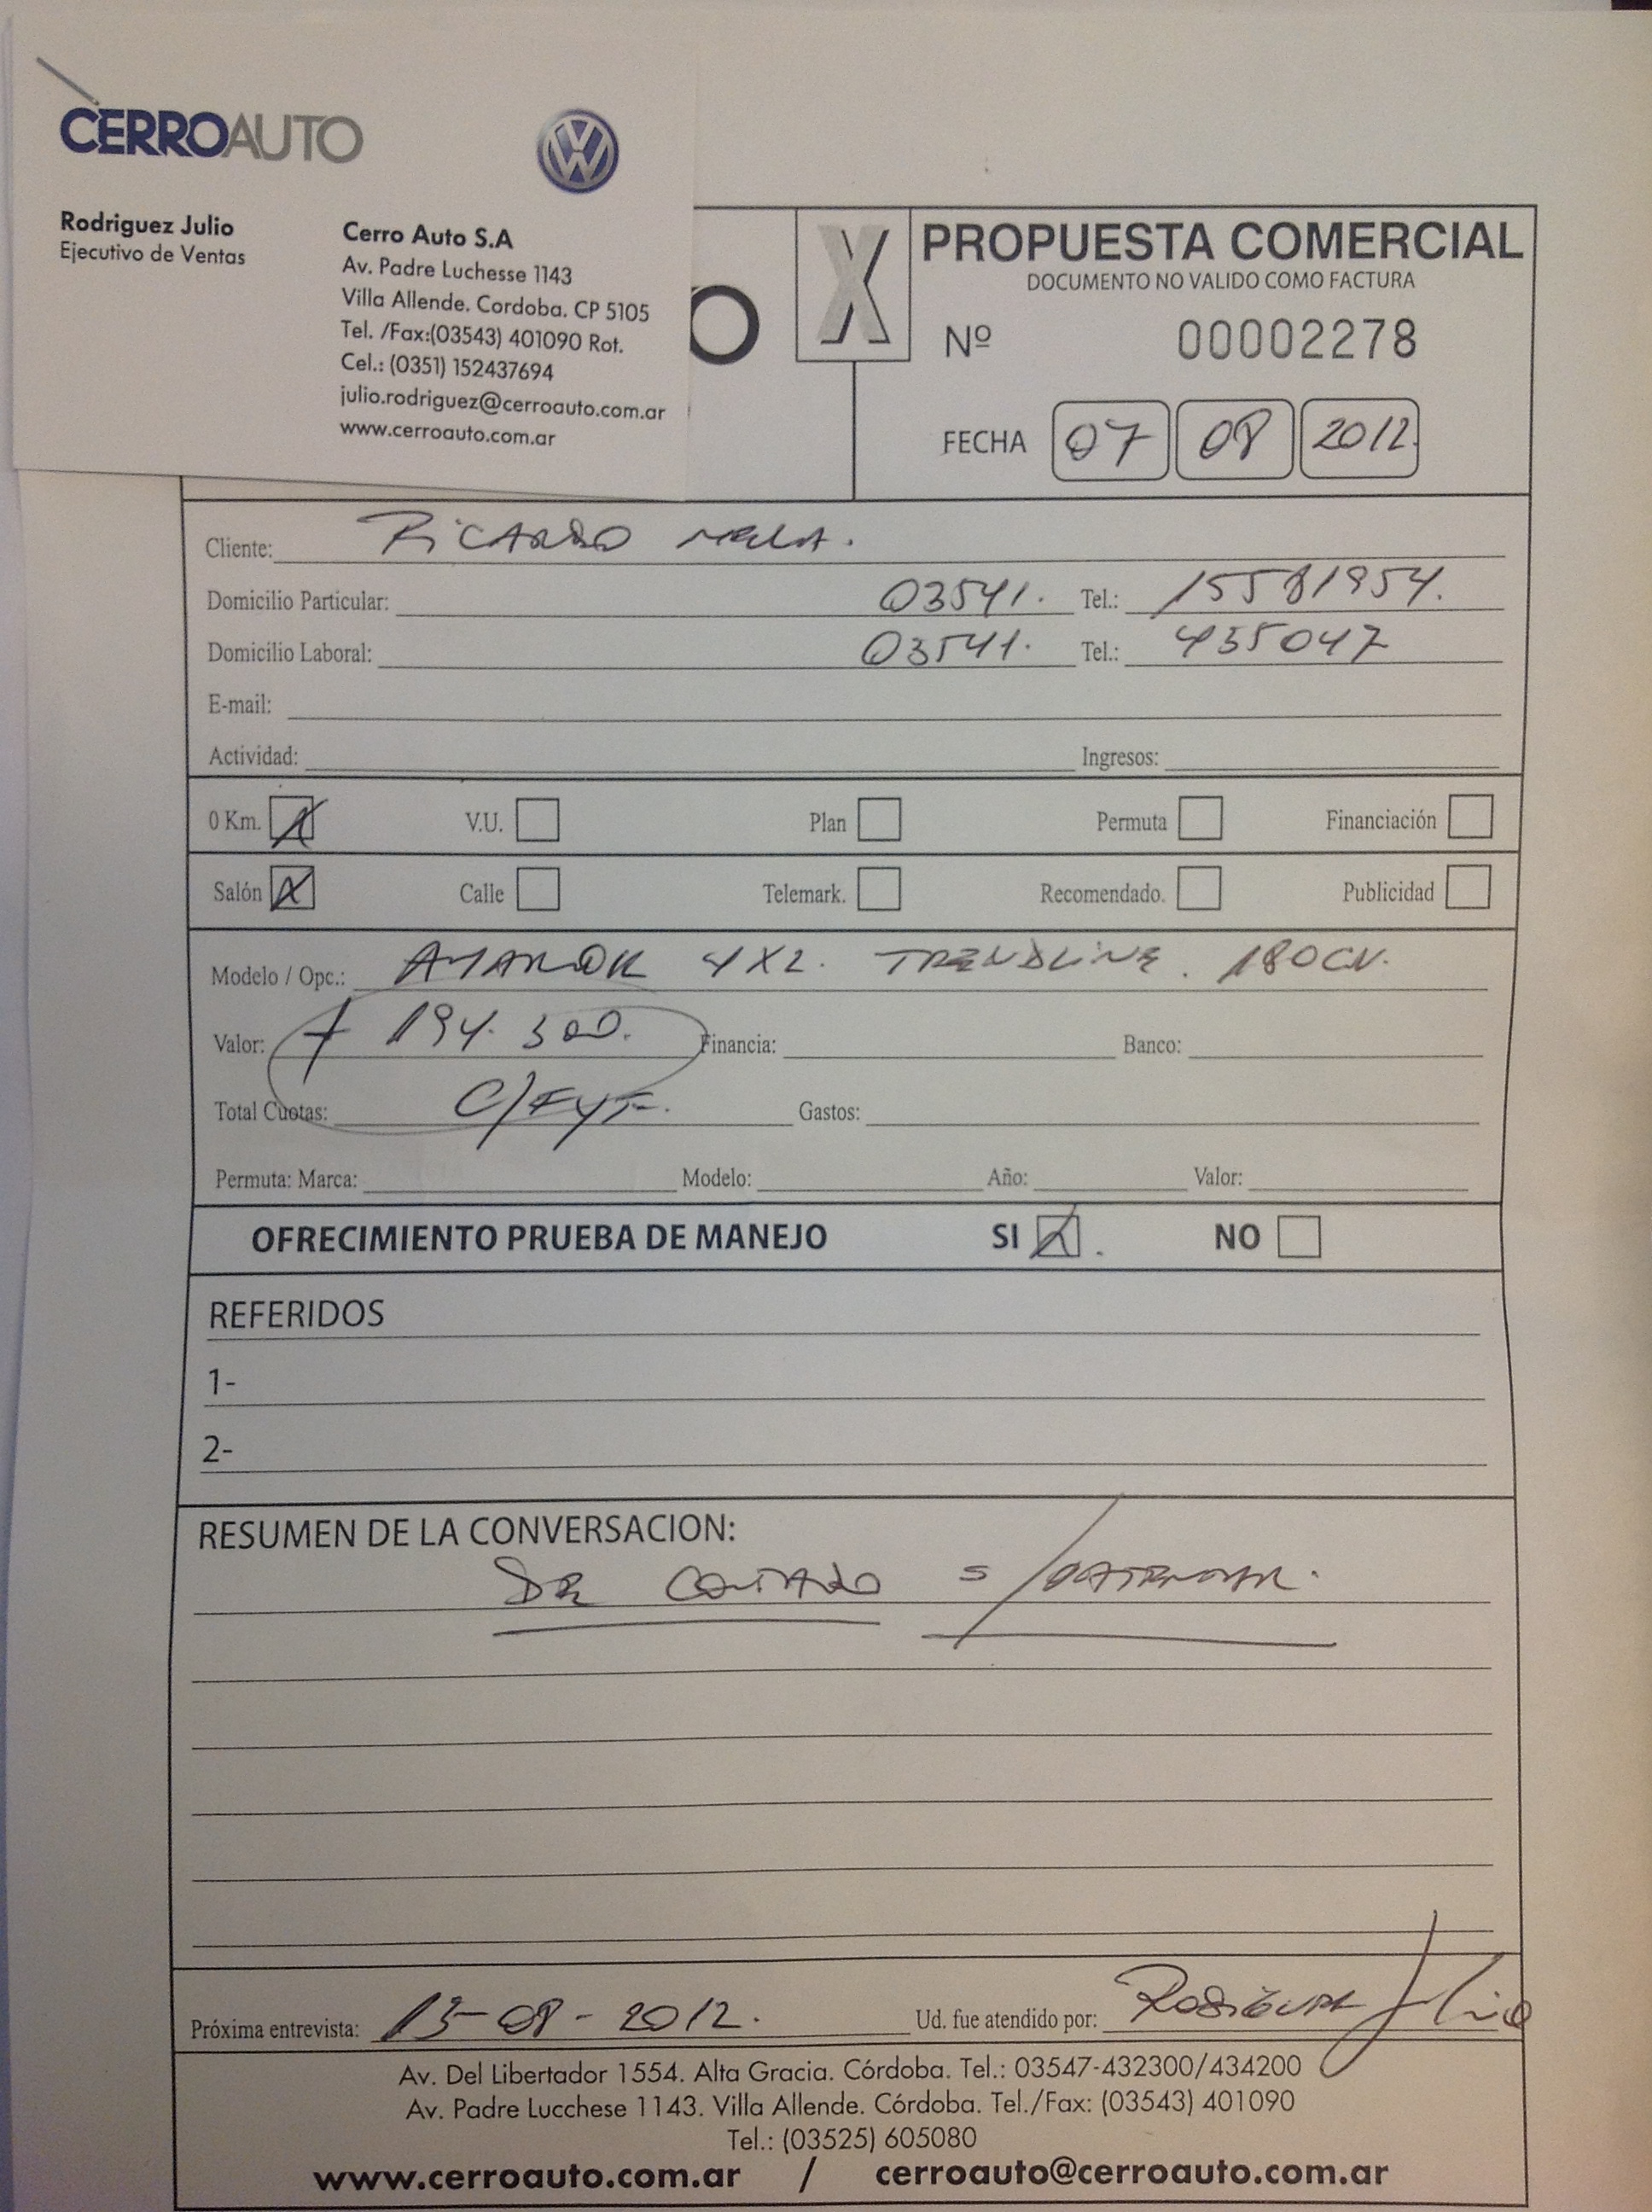 CERROAUTO
Rodriguez Julio
Ejecutivo de Ventas
Cerro Auto S.A
Av. Padre Luchesse 1143
Villa Allende. Cordoba. CP 5105
Tel. /Fax:(03543) 401090 Rot.
Cel.: (0351) 152437694
julio.rodriguez@cerroauto.com.ar
www.cerroauto.com.ar
O
X
PROPUESTA COMERCIAL
DOCUMENTO NO VALIDO COMO FACTURA
Nº 00002278
FECHA 07 08 2012
Cliente: RICARDO
Domicilio Particular: 03541. Tel.: 15581954.
Domicilio Laboral: 03541. Tel.: 435047
E-mail:
Actividad: Ingresos:
0 Km. X V.U. Plan Permuta Financiación
Salón X Calle Telemark. Recomendado. Publicidad
Modelo / Opc.: AMAROK 4X2. TRENDLINE. 180CV.
Valor: $ 194.300. Financia: Banco:
Total Cuotas: C/FYF. Gastos:
Permuta: Marca: Modelo: Año: Valor:
OFRECIMIENTO PRUEBA DE MANEJO SI X NO
REFERIDOS
1-
2-
RESUMEN DE LA CONVERSACION:
DE CONTADO S/PATENTAR.
Próxima entrevista: 13-08-2012. Ud. fue atendido por: RODRIGUEZ Julio
Av. Del Libertador 1554. Alta Gracia. Córdoba. Tel.: 03547-432300/434200
Av. Padre Lucchese 1143. Villa Allende. Córdoba. Tel./Fax: (03543) 401090
Tel.: (03525) 605080
www.cerroauto.com.ar / cerroauto@cerroauto.com.ar